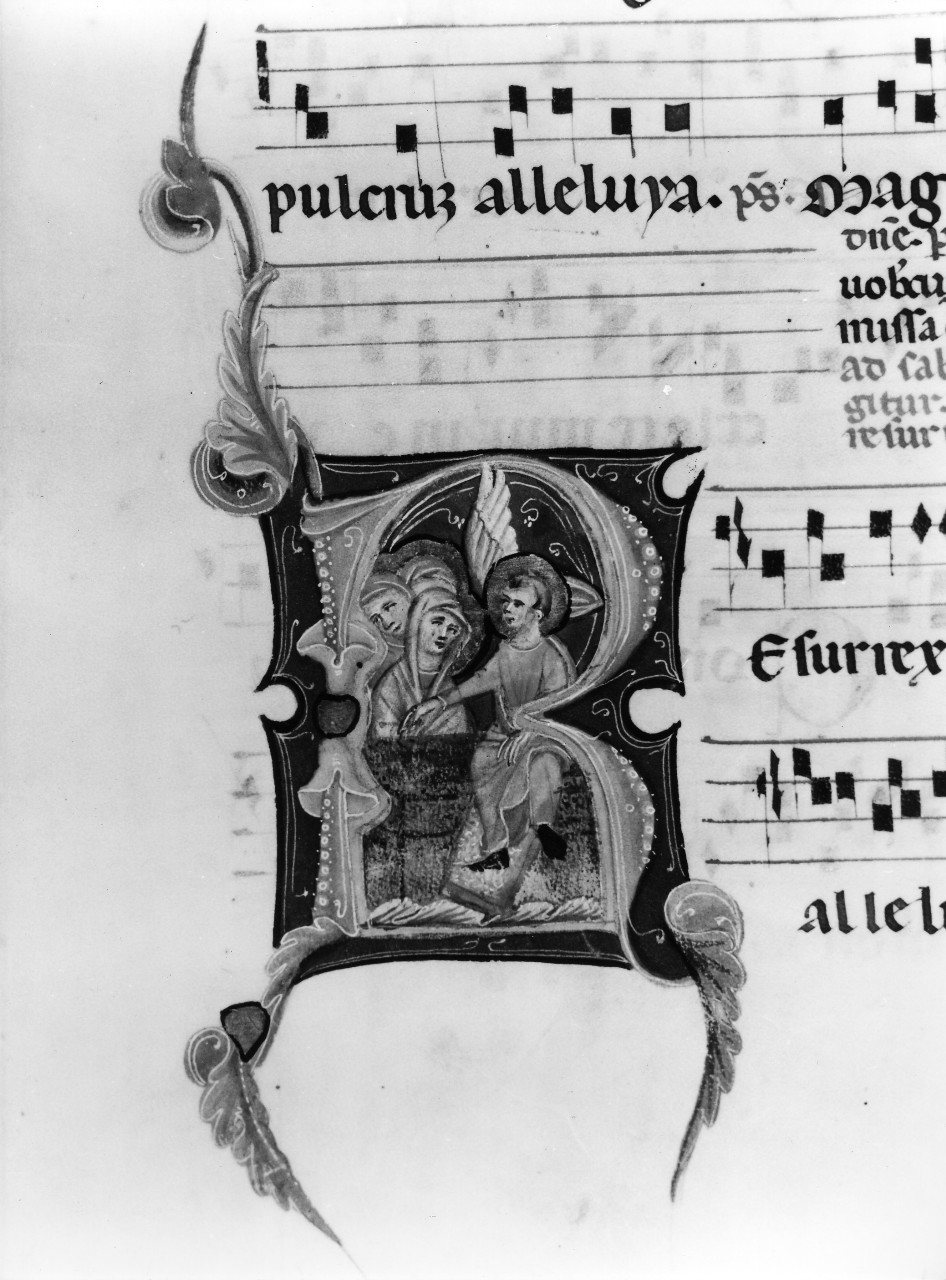 pulcruz alleluya. ps. Mag
dne. p
uobcu
missa
ad sab
gitur.
resur
R Esurrex
allelu